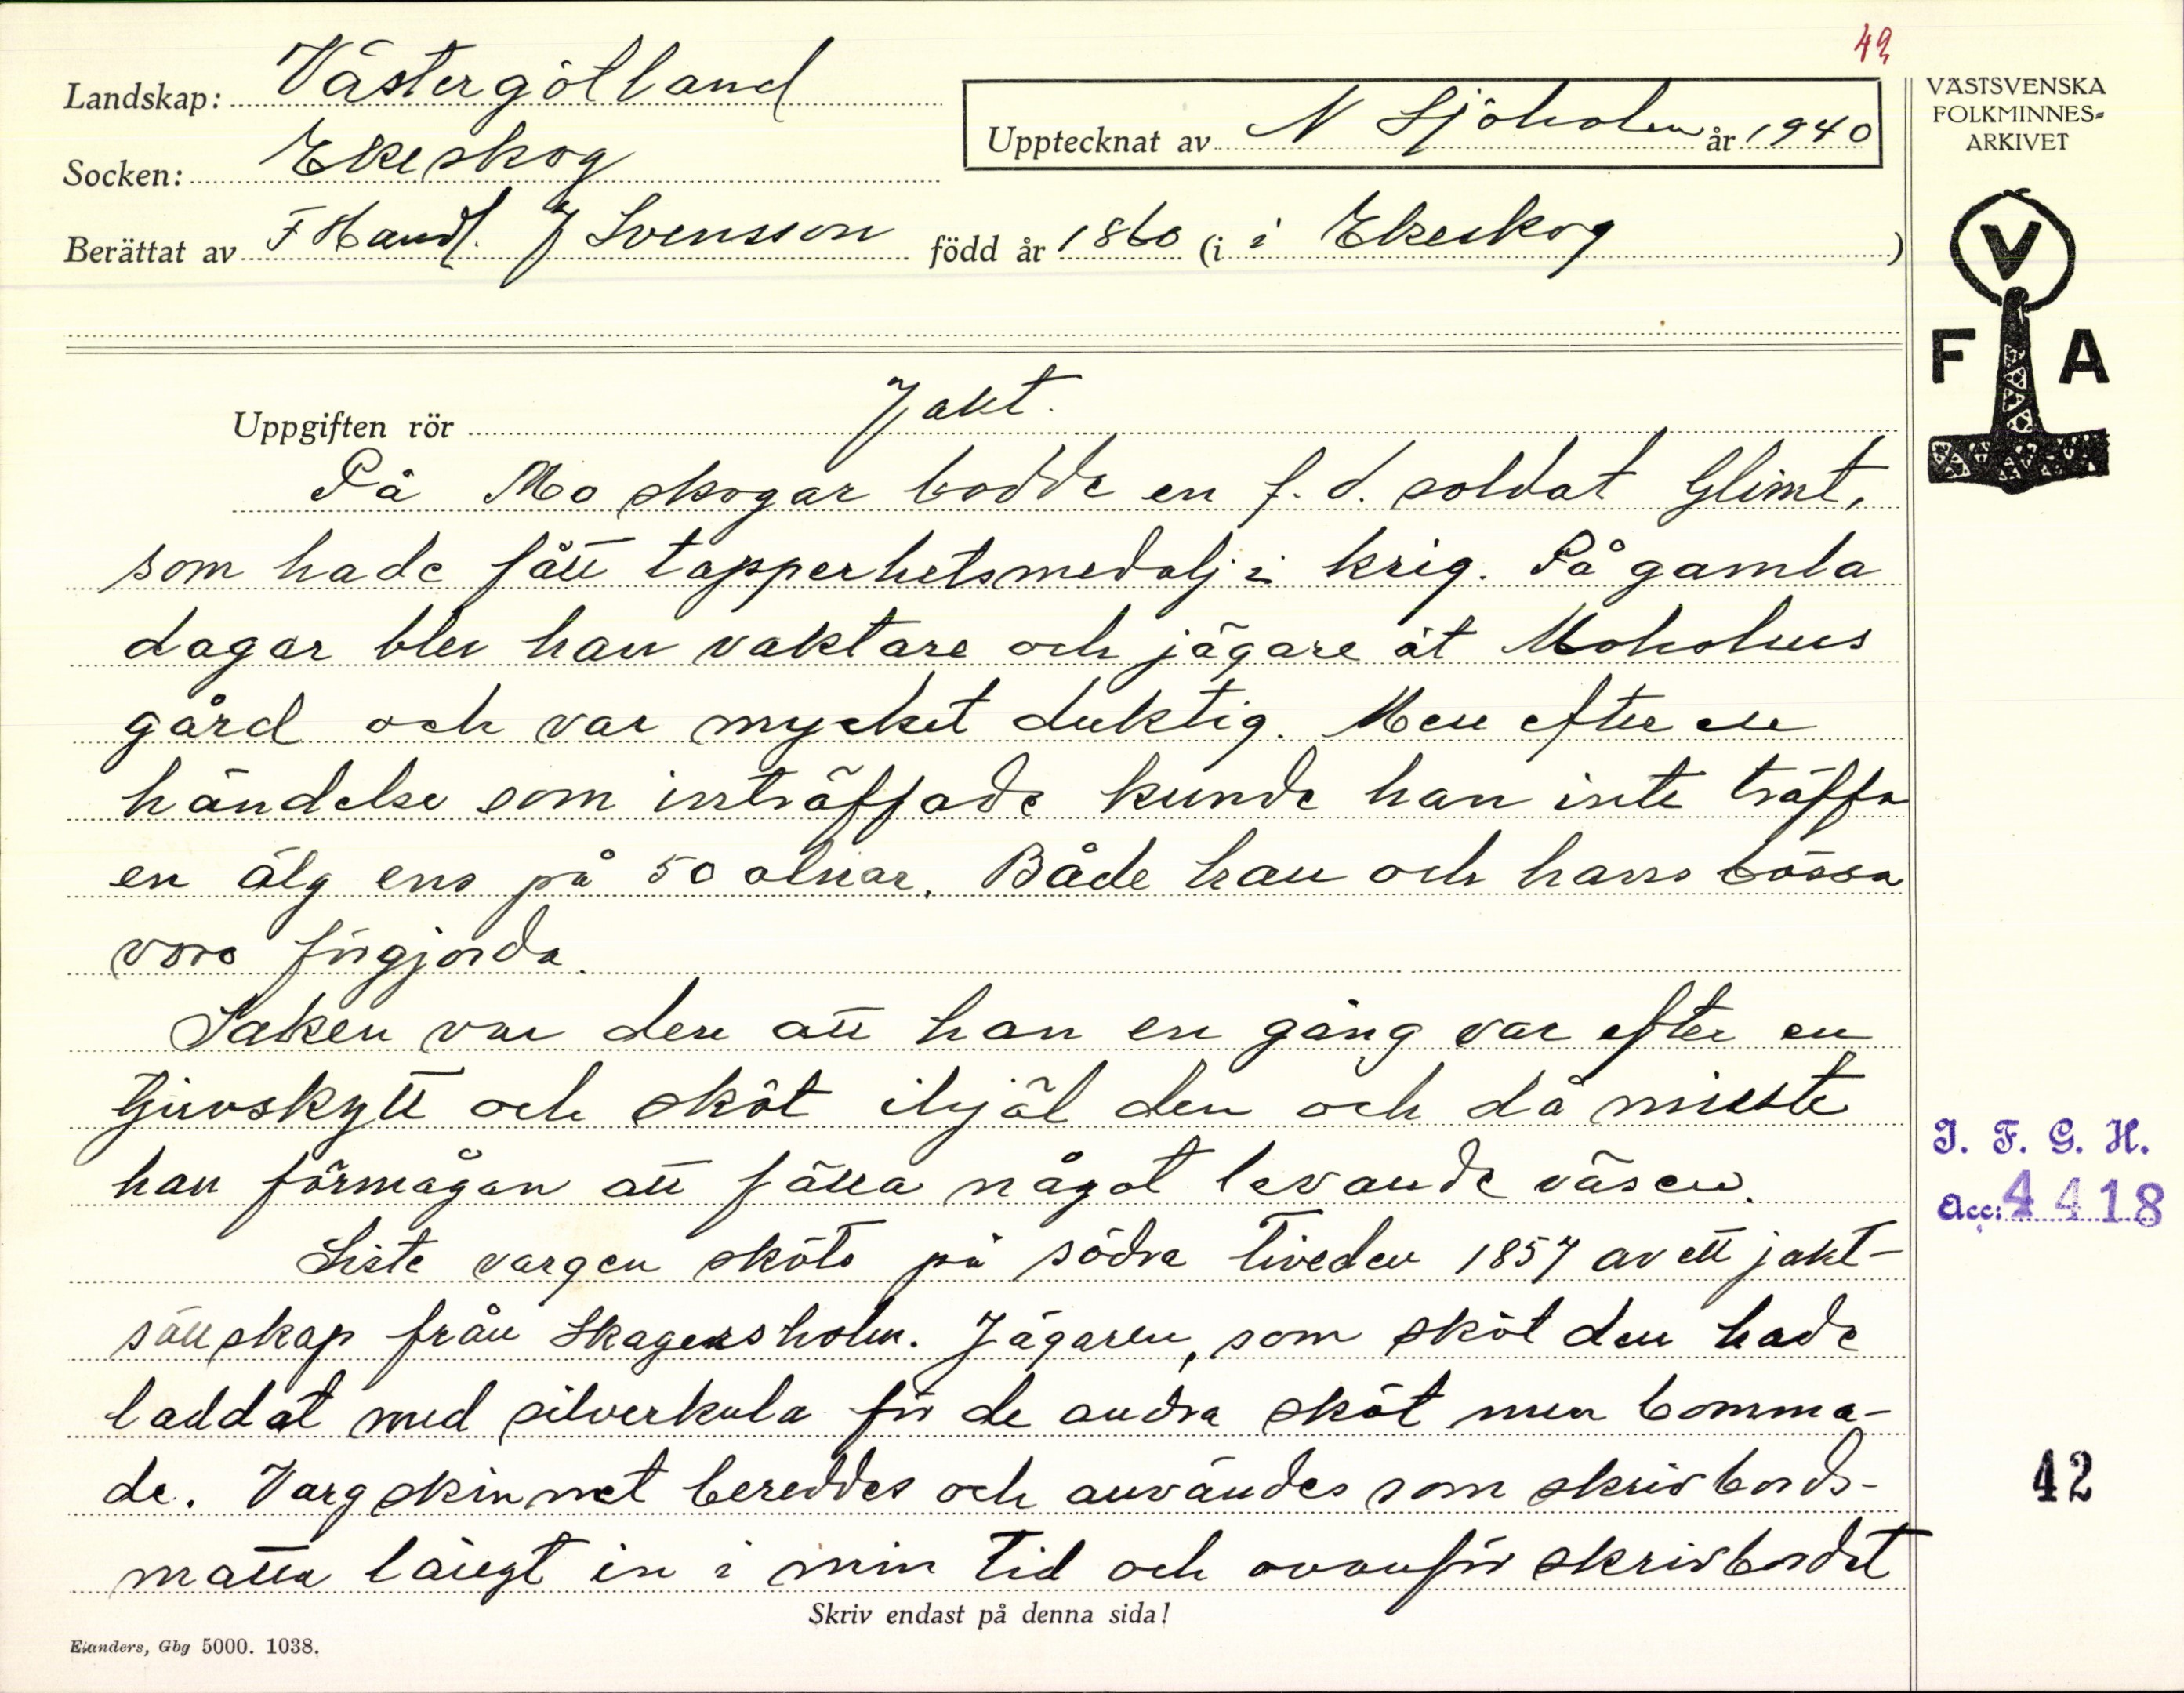 42
Landskap: Västergötland
Socken: Ekeskog
Berättat av F Handl. J Svensson född år 1860 (i i Ekeskog)
Upptecknat av N Sjöholm år 1940
VÄSTSVENSKA
FOLKMINNES-
ARKIVET
V
F A
Uppgiften rör Jakt.
På Mo skogar bodde en f. d. soldat Glimt,
som hade fått tapperhetsmedalj i krig. På gamla
dagar blev han vaktare och jägare åt Moholms
gård och var mycket duktig. Men efter en
händelse som inträffade kunde han inte träffa
en älg ens på 50 alnar. Både han och hans bössa
voro förgjorda.
Saken var den att han en gång var efter en
tjuvskytt och sköt ihjäl den och då miste
han förmågan att fälla något levande väsen.
Siste vargen sköts på södra Tiveden 1857 av ett jakt-
sällskap från Skagersholm. Jägaren, som sköt den hade
laddat med silverkula för de andra sköt men bomma-
de. Vargskinnet bereddes och användes som skrivbords-
matta långt in i min tid och ovanför skrivbordet
Skriv endast på denna sida!
Elanders, Gbg 5000. 1038.
I. F. G. H.
Acc: 4418
42